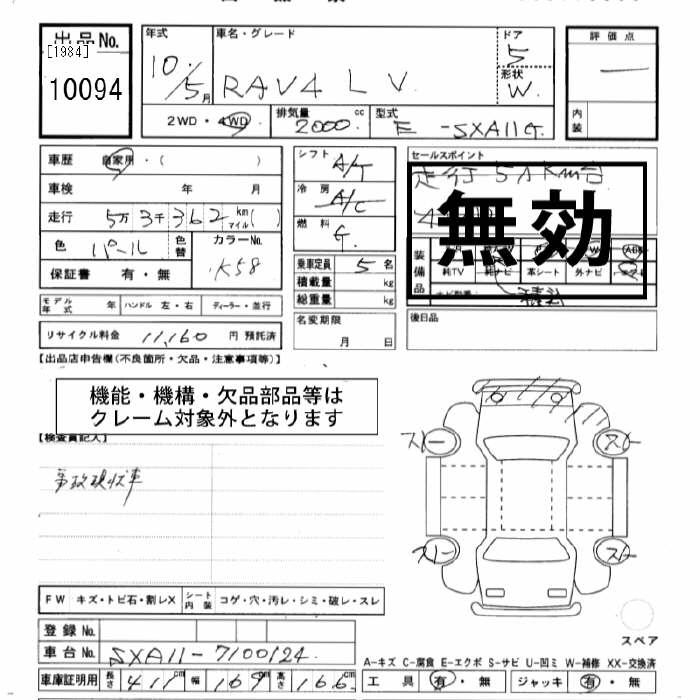 出品No. 年式 車名・グレード ドア 評価点
[1984] 10.5月 RAV4 L V 5 —
10094 形状 W.
2WD・4WD・ 排気量 2000 cc 型式 E -SXA11G. 内装
車歴 自家用・( ) シフト A/T セールスポイント
車検 年 月 冷房 A/C 走行5万Km台
走行 5万3千362 km マイル( ) 燃料 G. 無効
色 パール 色替 カラーNo. K58 乗車定員 5名 装備品 純TV 純ナビ 革シート 外ナビ
保証書 有・無 積載量 kg
モデル年式 年 ハンドル 左・右 ディーラー・並行 総重量 kg 積込
リサイクル料金 11,160 円 預託済 名変期限 月 日 後日品
【出品店申告欄(不良箇所・欠品・注意事項等)】
機能・機構・欠品部品等は
クレーム対象外となります
【検査員記入】
事故現状車
スレー スレー
スレー スレー
FW キズ・トビ石・割レX シート内装 コゲ・穴・汚レ・シミ・破レ・スレ
登録No. スペア
車台No. SXA11-7100124 A-キズ C-腐食 E-エクボ S-サビ U-凹ミ W-補修 XX-交換済
車庫証明用 長さ 411cm 幅 169cm 高さ 166cm 工具 有・無 ジャッキ 有・無